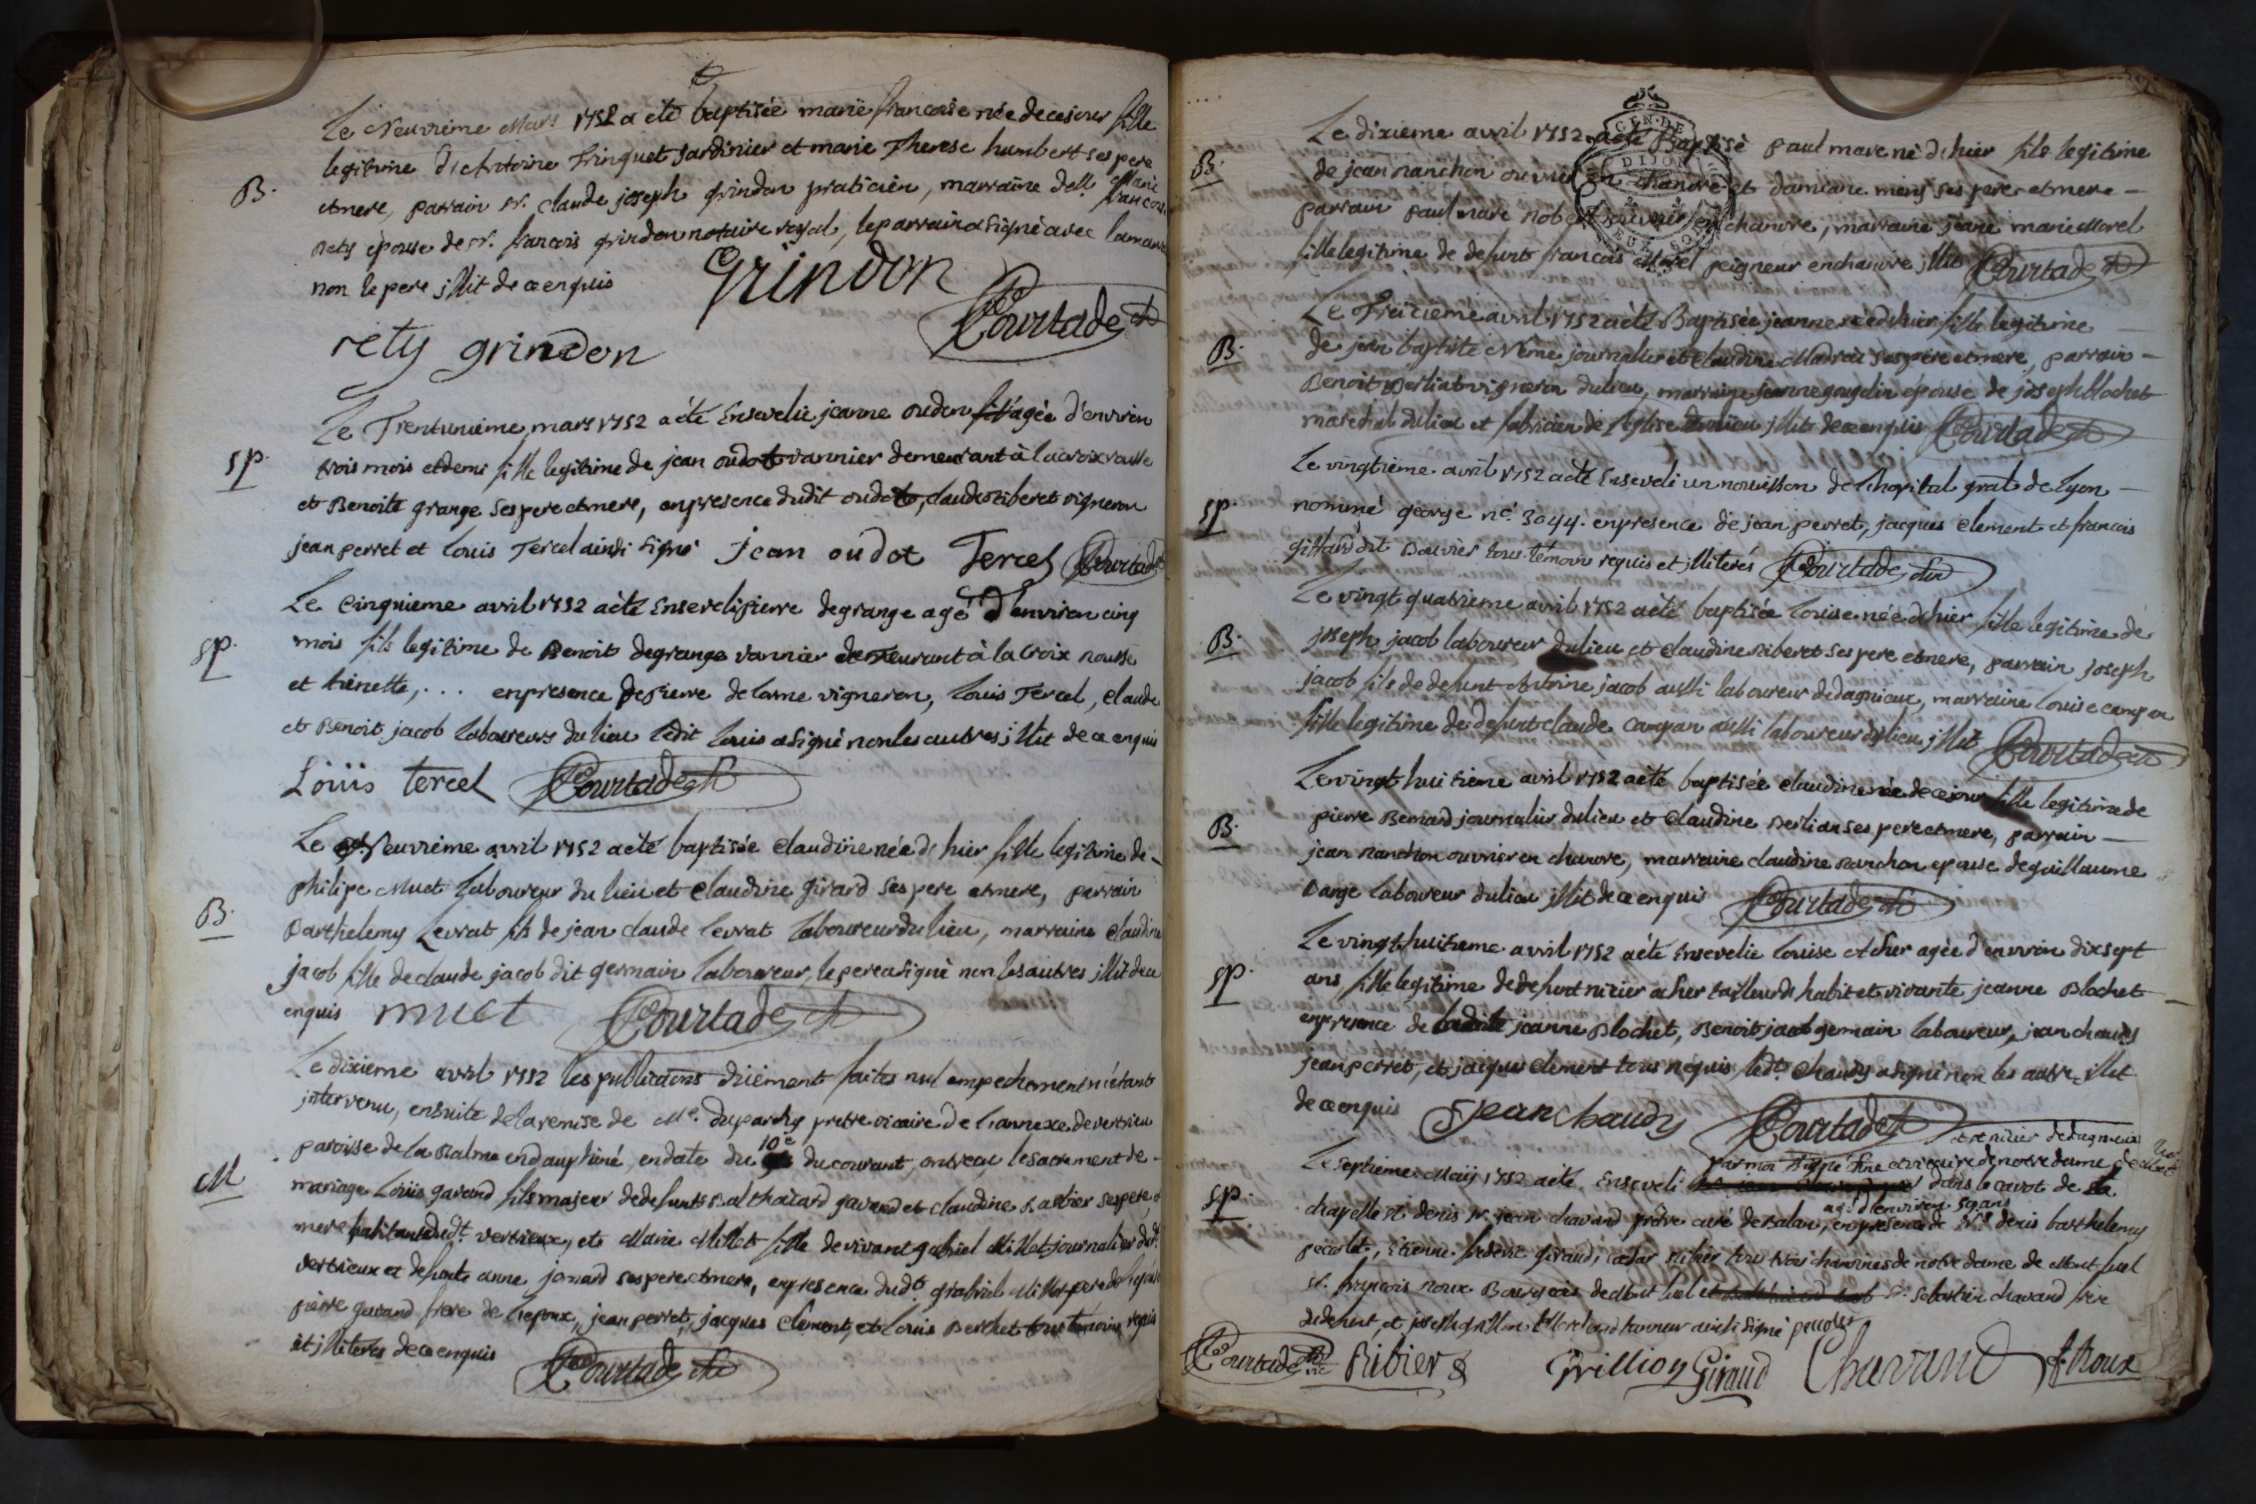 Le Neuvieme Mars 1752 a eté baptisée marie francoise née de ce jour fille
legitime d'Antoine Trinquet jardinier et marie Therese humbert ses pere
B.
et mere, parrain sr. claude joseph grindon praticien, marraine dell. Marie francoise
rety epouse de sr. francois grindon notaire royal, le parrain a signé avec la marr
non le pere illit de ce enquis
Grindon
Courtade
rety grindon
Le Trentunieme mars 1752 a eté Ensevelie jeanne oudon agée d'environ
sp.
trois mois et demi fille legitime de jean oudot vannier demeurant à la croix rousse
et Benoite grange ses pere et mere, en presence dudit oudot, claude riberet vigneron
jean perret et louis Tercel ainsi signé jean oudot Tercel Courtade
Le Cinquieme avril 1752 a eté Enseveli pierre degrange agé d'environ cinq
sp.
mois fils legitime de Benoit degrange vannier demeurant à la Croix rousse
et trinette, ... en presence de pierre delorme vigneron, louis Tercel, claude
et Benoit jacob laboureurs du lieu ledit louis a signé non les autres illit de ce enquis
Loüis tercel Courtade
Le Neuvieme avril 1752 a eté baptisée claudine née d'hier fille legitime de
philipe Muet laboureur du lieu et claudine girard ses pere et mere, parrain
B.
Barthelemy Levrat fils de jean claude levrat laboureur du lieu, marraine claudine
jacob fille de claude jacob dit germain laboureur, le pere a signé non les autres illit de ce
enquis muet Courtade
Le dixieme avril 1752 les publications düement faites nul empechement n'etant
intervenu, ensuite de la remise de Me. dupardy pretre vicaire de l'annexe de vertrieu
paroisse de la Balme en dauphiné, en date du 10e du courant, ont recu le sacrement de
M
mariage Loüis gavand fils majeur de defunts Balthazard gavand et claudine Barbier ses pere et
mere habitants dudt vertrieux, et Marie Millet fille de vivant gabriel Millet journalier dudt.
vertrieux et defunte anne jonard ses pere et mere, en presence dudt gabriel Millet pere de
pierre gavand frere de l'epoux, jean perret, jacques Clement, et louis Berthet tous temoins requis
et illiterés de ce enquis Courtade
Le dixieme avril 1752 a eté Baptisé paul marc né d'hier fils legitime
B.
de jean nanchon ouvrier en chanvre et damiane ses pere et mere
parrain paul marc ouvrier en chanvre, marraine jeane marie Morel
fille legitime de defunt francois Morel peigneur en chanvre illit Courtade
Le Treizieme avril 1752 a eté Baptisée jeanne née d'hier fille legitime
B.
de jean baptiste Neme journalier et claudine ses pere et mere, parrain
Benoit Berliat vigneron du lieu, marraine jeanne goujelin epouse de joseph Blochet
marechal du lieu et fabricien de l'eglise du lieu illit de ce enquis Courtade
Le vingtieme avril 1752 a eté Enseveli un nourisson de l'hopital gral de lyon
sp.
nommé george n°. 3044. en presence de jean perret, jacques clement et francois
dit Bouvier tous temoins requis et illiterés Courtade
Le vingt quatrieme avril 1752 a eté baptisée louise née d'hier fille legitime de
B.
joseph jacob laboureur du lieu et claudine riberet ses pere et mere, parrain joseph
jacob fils de defunt Antoine jacob aussi laboureur de dagnieux, marraine louise campan
fille legitime de defunt claude campan aussi laboureur du lieu illit Courtade
Le vingt huitieme avril 1752 a eté baptisée claudine née de ce jour fille legitime de
B.
pierre Bernard journalier du lieu et claudine Berlian ses pere et mere, parrain
jean nanchon ouvrier en chanvre, marraine claudine nanchon epouse de guillaume
Barge laboureur du lieu illit de ce enquis Courtade
Le vingt huitieme avril 1752 a eté Ensevelie louise Acher agée d'environ dix sept
sp.
ans fille legitime de defunt nizier acher tailleur d'habit et vivante jeanne Blochet
en presence de ladite jeanne Blochet, Benoit jacob germain laboureur, jean chaudy
jean perret, et jacques clement tous requis, ledt. Chaudy a signé non les autres illit
de ce enquis jean chaudy Courtade
par moi curé de notre dame de
Le septieme May 1752 a eté Enseveli dans le cavot de la
sp.
agé d'environ 50 ans
chapelle st denis sr. jean chavand pretre curé de Balan, en presence de Srs denis barthelemy
pecolet, Etienne frederic giraud, cesar ribier tous trois chanoines de notre dame de Mont luel
sr. francois roux Bourgeois de Mont luel sr. sebastien chavand frere
du defunt, et joseph grillion Marchand tanneur ainsi signé pecolet
Courtade Ribier Grillion Giraud Chavand f. Roux